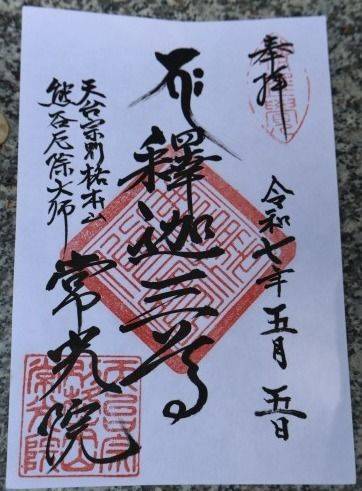 奉拝
令和七年五月五日
釋迦三尊
天台宗別格本山
熊谷厄除大師
常光院